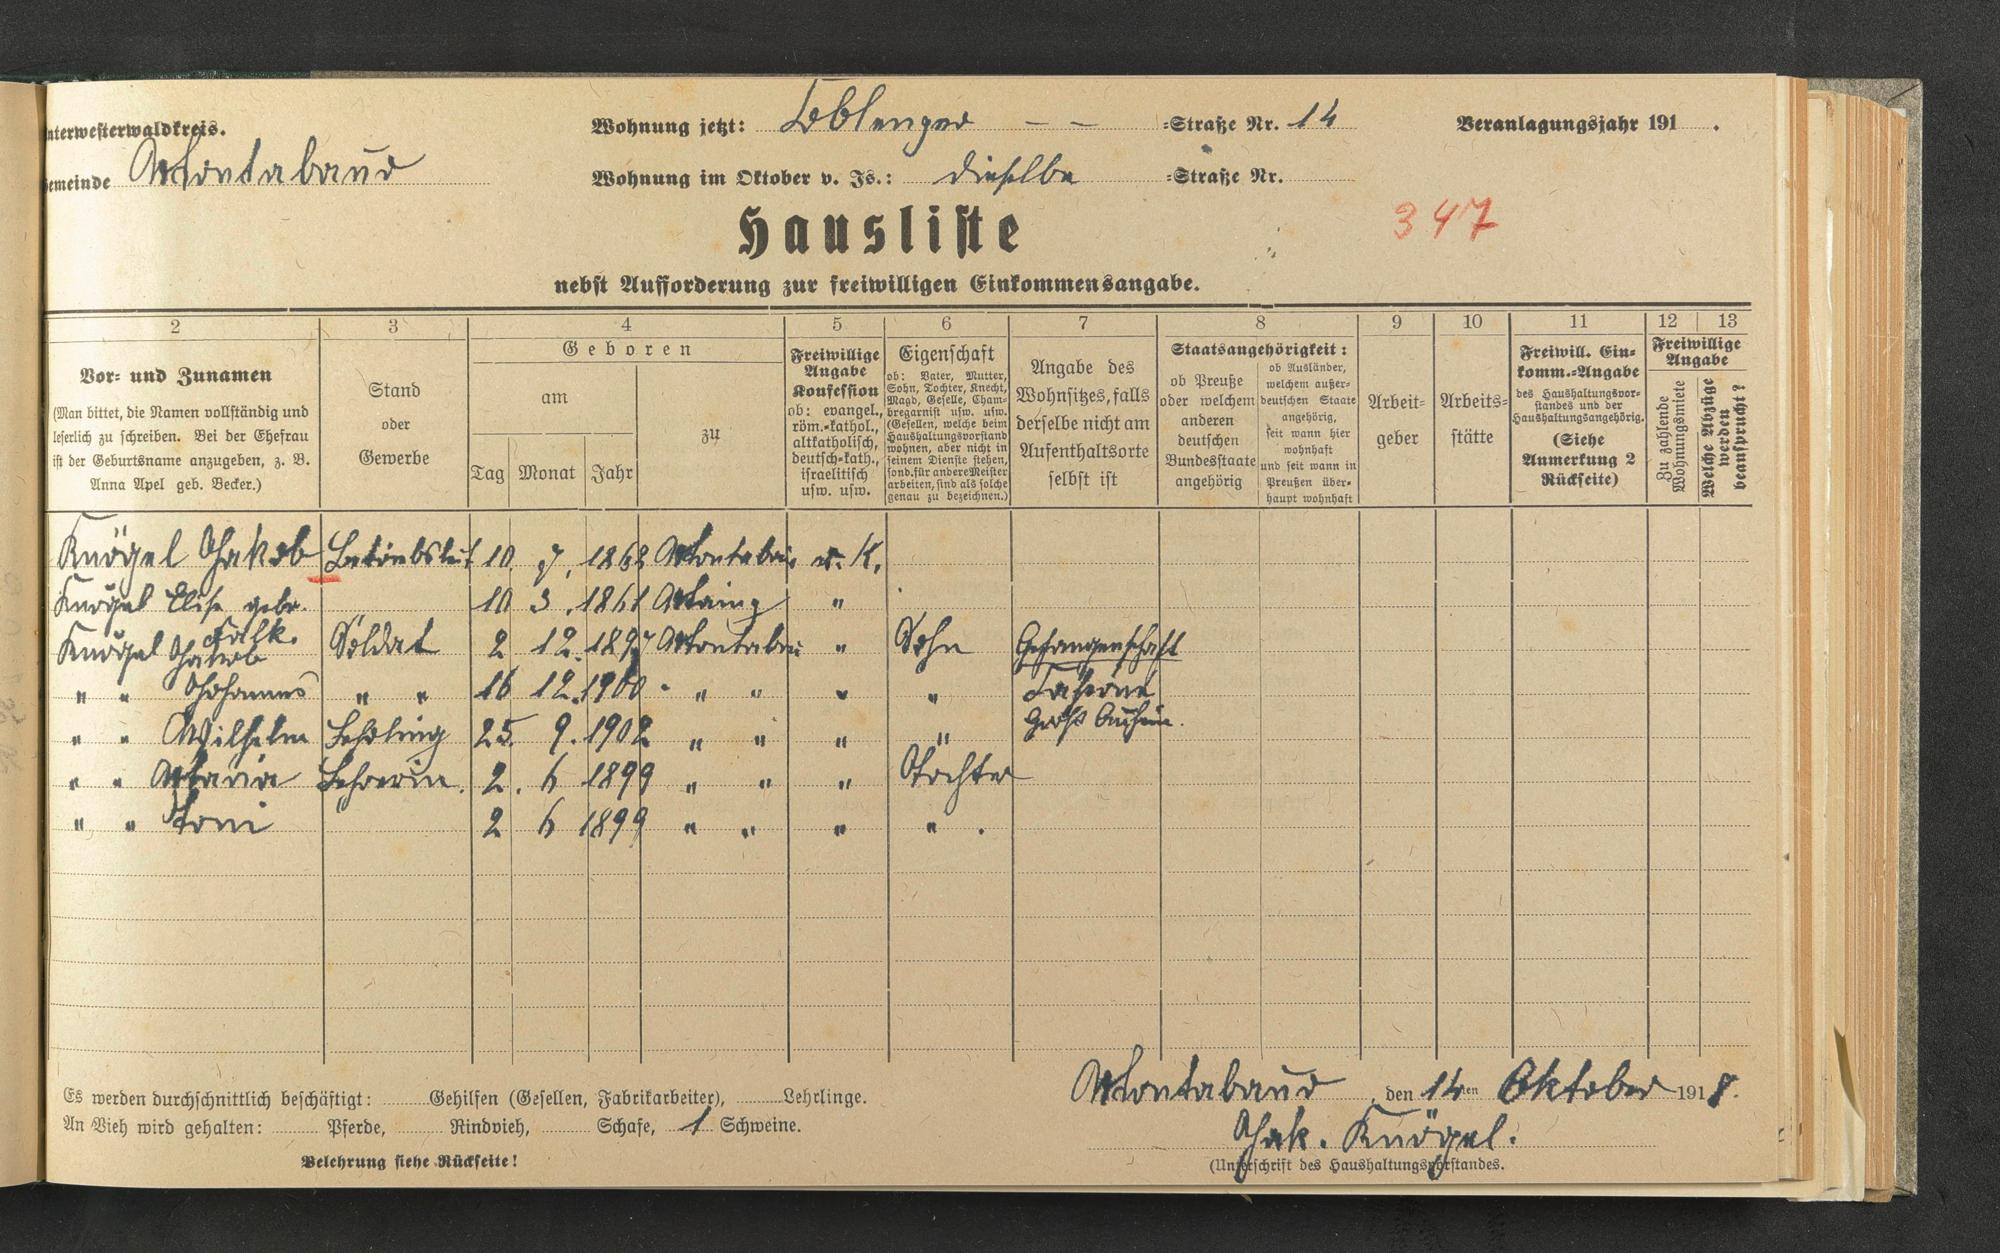 nterwesterwaldkreis.
Wohnung jetzt: Coblenzer - - =Straße Nr. 14
Veranlagungsjahr 191 .
emeinde Montabaur
Wohnung im Oktober v. Js.: dieselbe =Straße Nr.
347
Hausliste
nebst Aufforderung zur freiwilligen Einkommensangabe.
2 3 4 5 6 7 8 9 10 11 12 13
Vor- und Zunamen
(Man bittet, die Namen vollständig und
leserlich zu schreiben. Bei der Ehefrau
ist der Geburtsname anzugeben, z. B.
Anna Apel geb. Becker.)
Stand
oder
Gewerbe
Geboren
am
Tag Monat Jahr
zu
Freiwillige
Angabe
Konfession
ob: evangel.,
röm.-kathol.,
altkatholisch,
deutsch-kath.,
israelitisch
usw. usw.
Eigenschaft
ob: Vater, Mutter,
Sohn, Tochter, Knecht,
Magd, Geselle, Cham-
bregarnist usw. usw.
(Gesellen, welche beim
Haushaltungsvorstand
wohnen, aber nicht in
seinem Dienste stehen,
sond. für andere Meister
arbeiten, sind als solche
genau zu bezeichnen.)
Angabe des
Wohnsitzes, falls
derselbe nicht am
Aufenthaltsorte
selbst ist
Staatsangehörigkeit:
ob Preuße
oder welchem
anderen
deutschen
Bundesstaate
angehörig
ob Ausländer,
welchem außer-
deutschen Staate
angehörig,
seit wann hier
wohnhaft
und seit wann in
Preußen über-
haupt wohnhaft
Arbeit-
geber
Arbeits-
stätte
Freiwill. Ein-
komm.-Angabe
des Haushaltungsvor-
standes und der
Haushaltungsangehörig.
(Siehe
Anmerkung 2
Rückseite)
Freiwillige
Angabe
Zu zahlende
Wohnungsmiete
Welche Abzüge
werden
beansprucht?
Knögel Jakob 10 7. 1868 Montabaur K.
Knögel Elise gebr. 10 3. 1861 Mainz "
Falk.
Knögel Jakob Soldat 2 12. 1897 Montabaur " Sohn Gefangenschaft
" " Johannes " " 16 12. 1900 " " " "
" " Wilhelm Lehrling 25. 9. 1902 " " " " Groß Auheim.
" " Maria Lehrerin. 2. 6 1899 " " " Töchter
" " Toni 2 6 1899 " " " " .
Montabaur, den 14ten Oktober 1918.
Es werden durchschnittlich beschäftigt: Gehilfen (Gesellen, Fabrikarbeiter), Lehrlinge.
An Vieh wird gehalten: Pferde, Rindvieh, Schafe, 1 Schweine.
Jak. Knögel.
Belehrung siehe Rückseite!
(Unterschrift des Haushaltungsvorstandes.